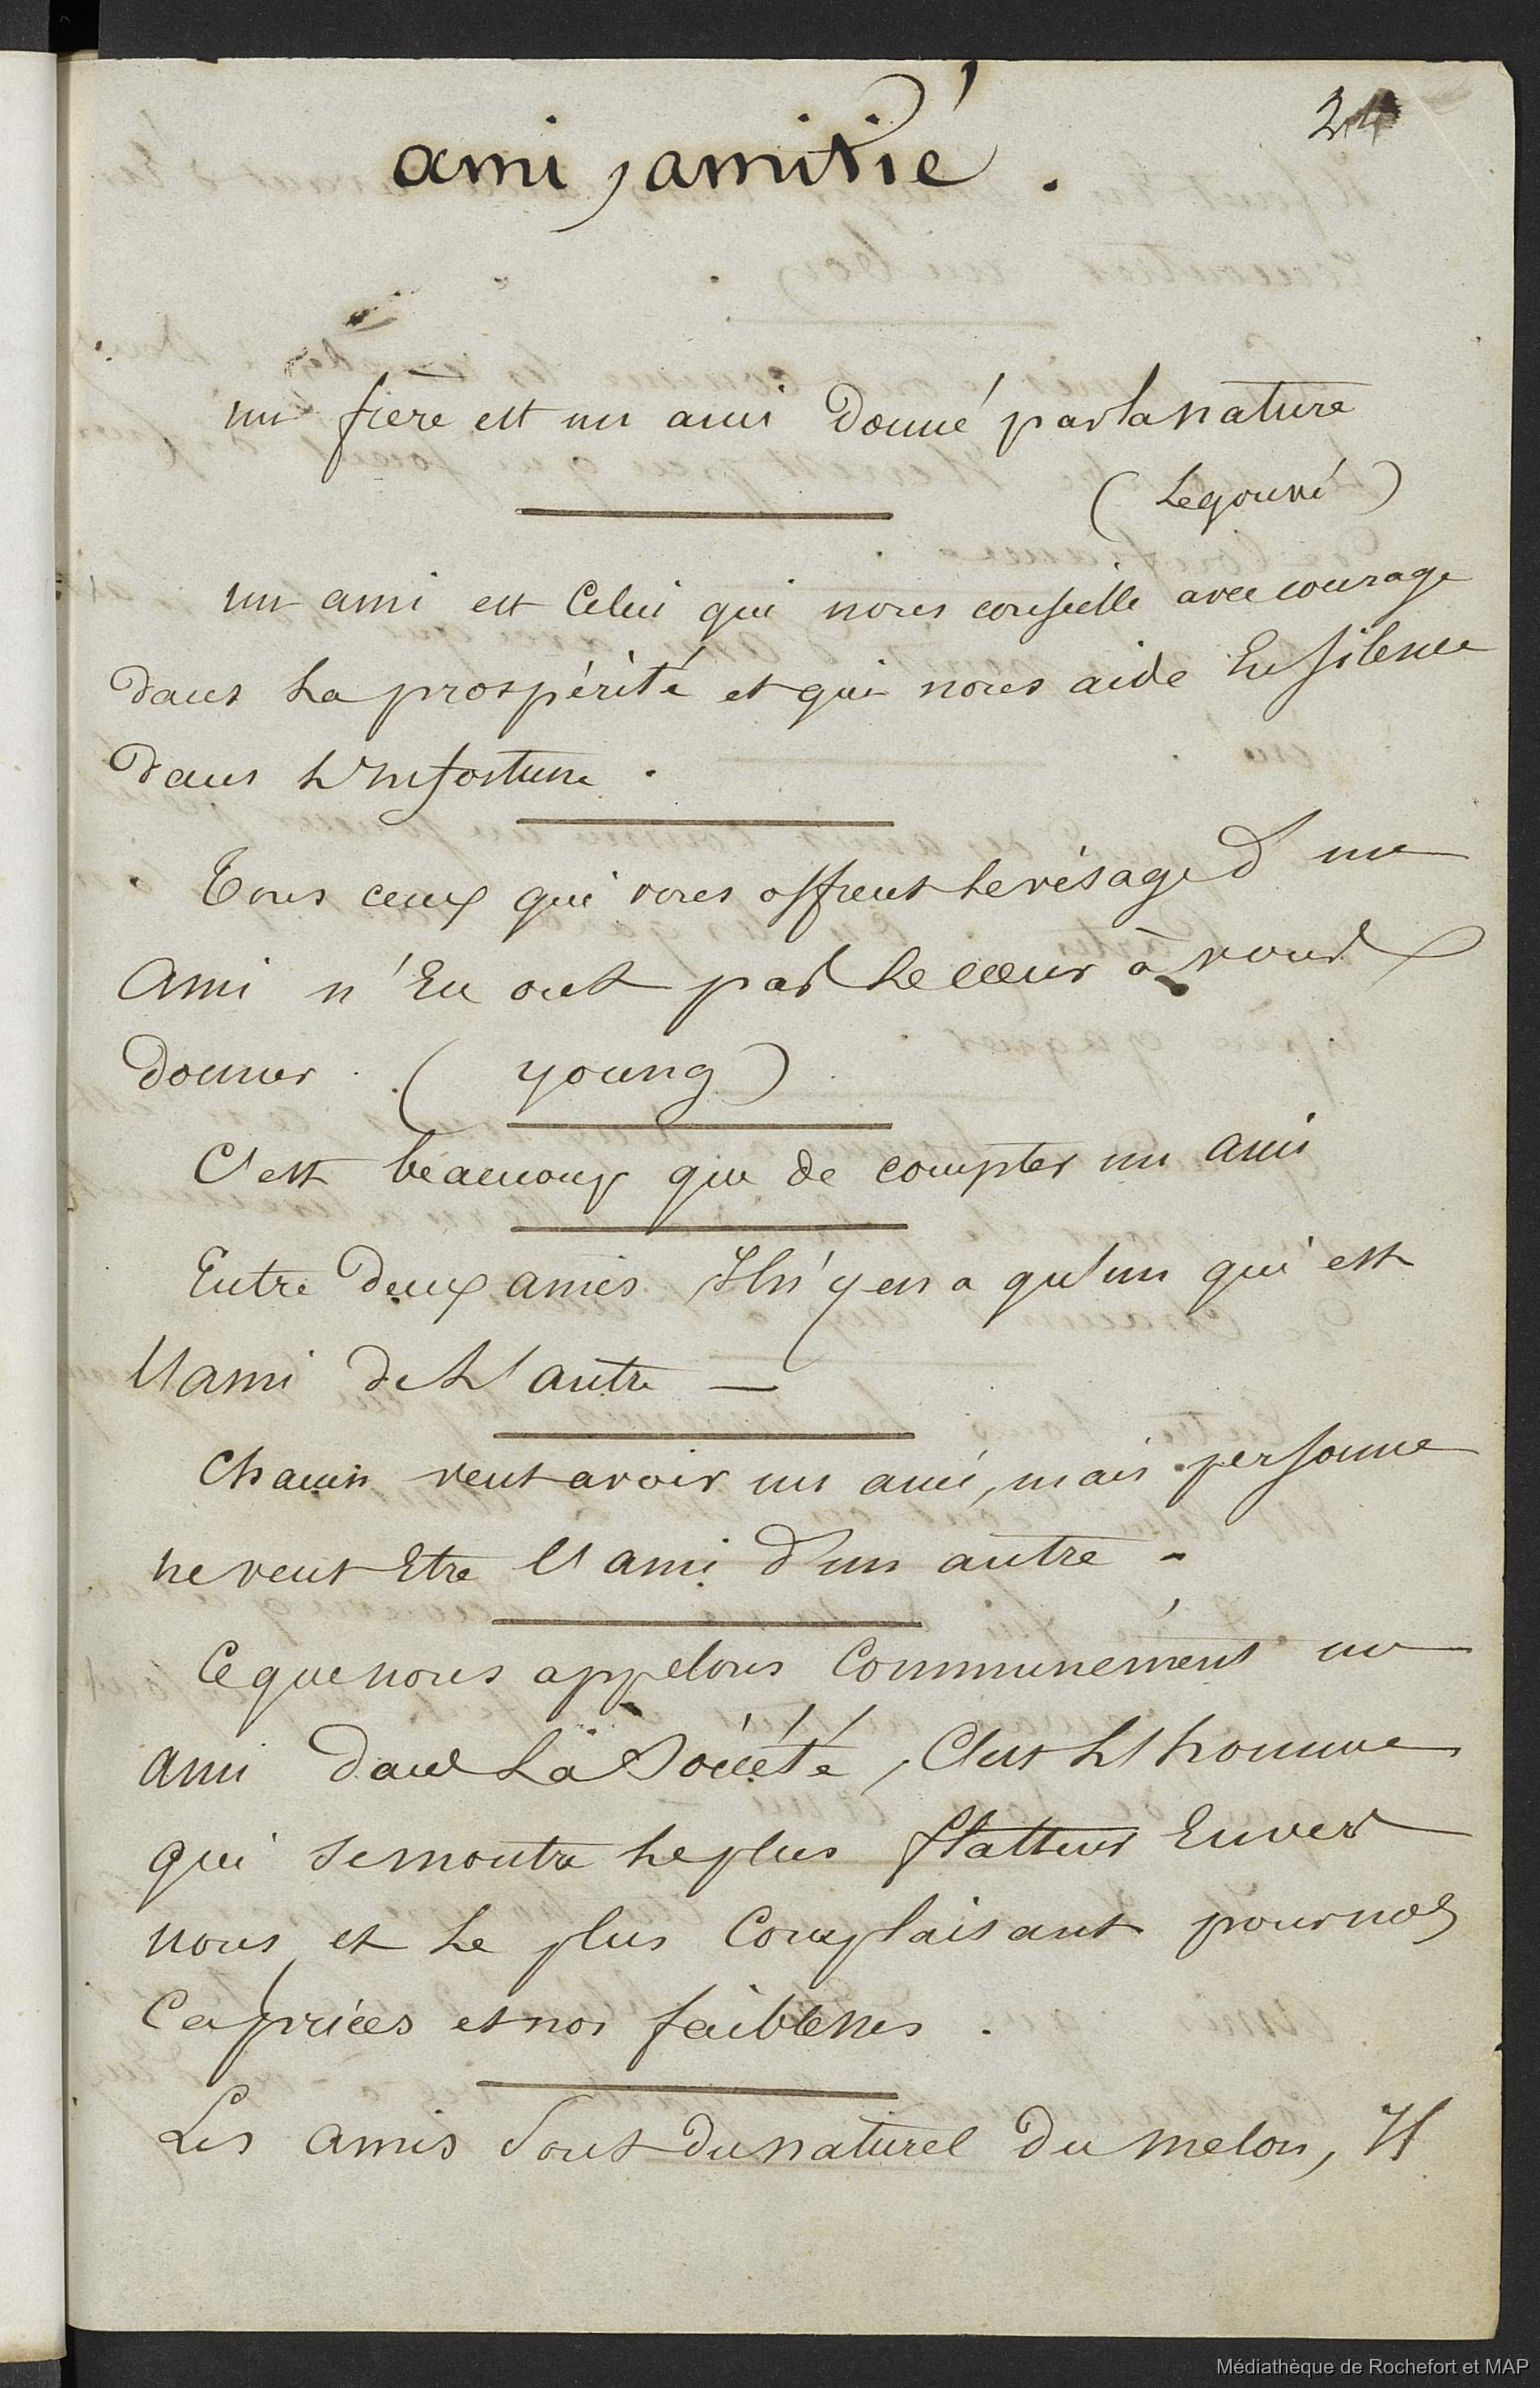 24
ami, amitié.
un frère est un ami donné par la nature
(Legouvé)
un ami est Celui qui nous conseille avec courage
dans la prospérité et qui nous aide En silence
dans L'Infortune.
Tous ceux qui vous offrent le visage d'un
Ami n'En ont pas le cœur à vous
donner. (young)
C'est beaucoup que de compter un ami
Entre deux amis Il n'y en a qu'un qui est
l'ami de L'autre —
Chacun veut avoir un ami, mais personne
ne veut Etre l'ami d'un autre.
Ce que nous appelons Communément un
ami dans La Société, C'est L'homme
qui se montre le plus flatteur Envers
nous, et le plus Complaisant pour nos
Caprices et nos faiblesses.
Les amis sont du naturel du melon, Il
Médiathèque de Rochefort et MAP